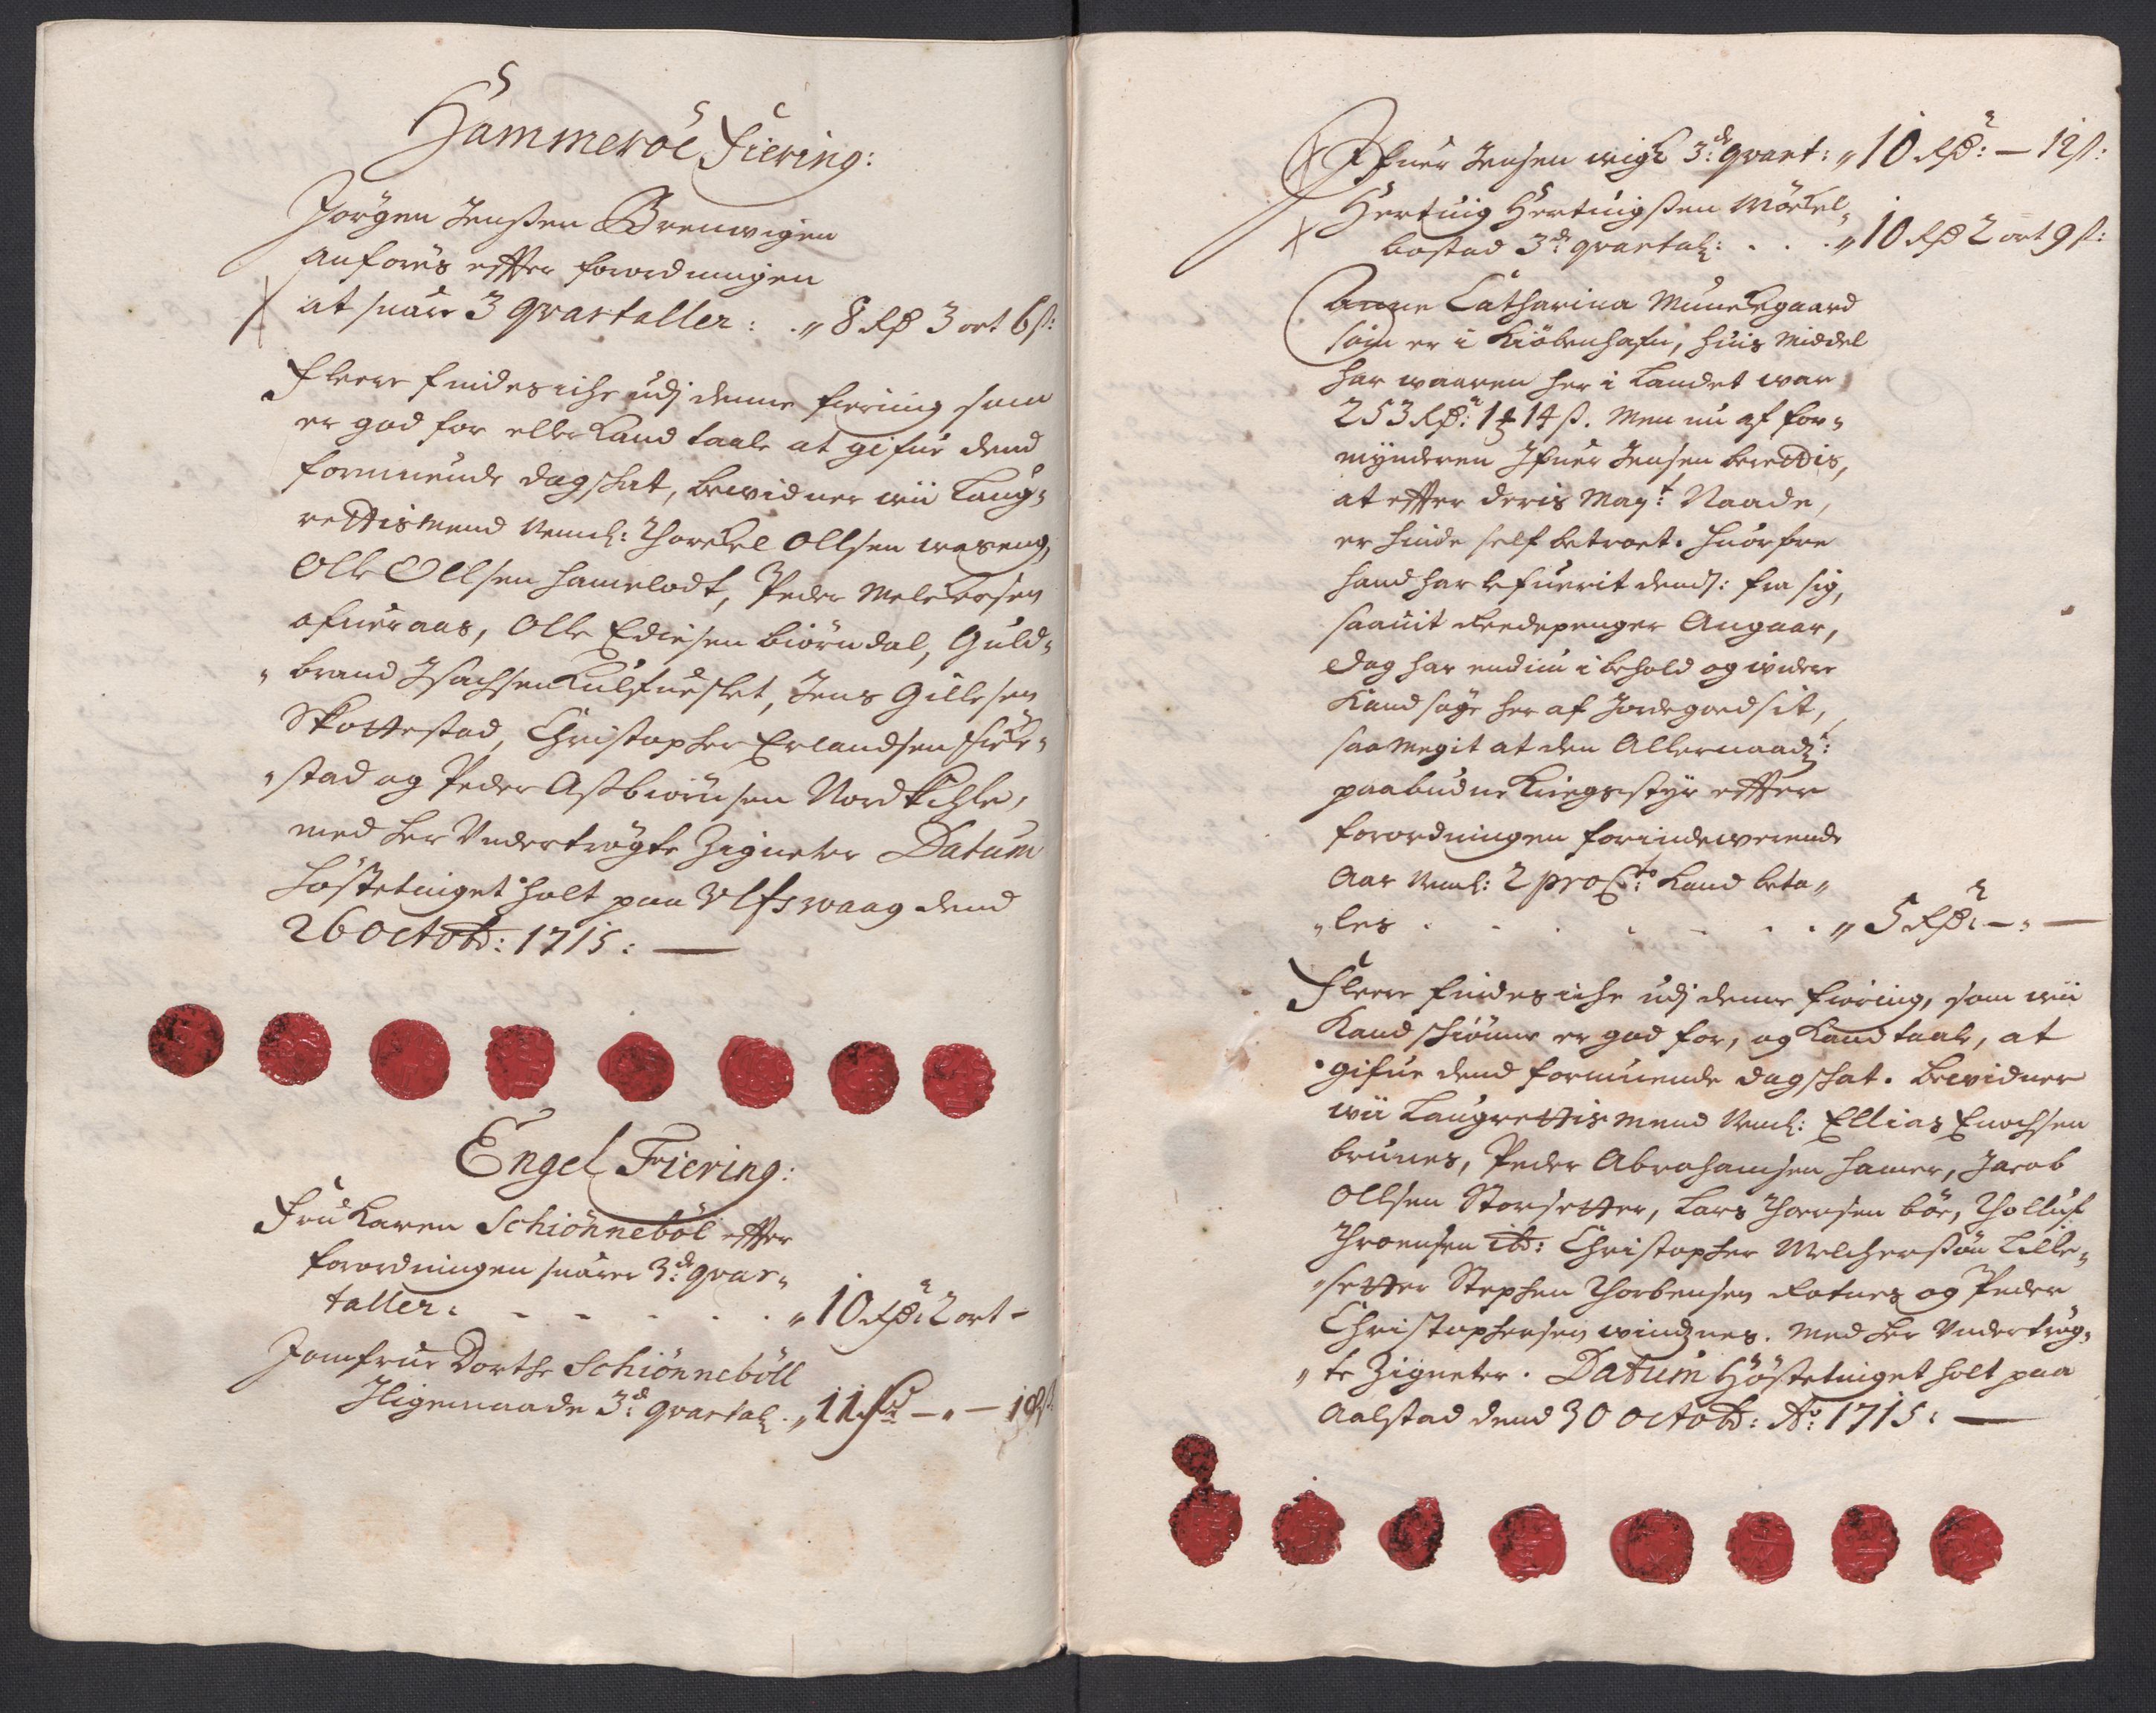 Hammerøe Fiering:
Jørgen Jenssen Grenwigen
anføris efter forordningen
at svare 3 qvartaller: . „ 8 Rd 3 ort 6 s:
Fleere findes iche udj denne fiering som
er god for eller kand taale at gifue dend
formuende dagschat, bevidner wii Laug-
rettismend Nemlig: Thorchel Ollsen
Olle Ollsen Hamelodt, Peder Melchersen
ofueraas, Olle Ediesen Biørndal, Guld-
„brand Isachsen Kulfueslet, Jens Gillesen
Skottestad, Christopher Erlandsen
„stad og Peder Assbiørnsen Nordkihle,
med her Undertrøgte Zigneter Datum
Høstetinget holt paa Ulfswaag dend
26 Octobr: 1715: —
Engel Fiering:
Fru Karen Schiønnebøl efter
forordningen svarer 3de qvar-
taller: - - - - . . „ 10 Rdr: 2 ort -
Jomfrue Dorthe Schiønnebøll
Iligemaade 3de qvartal . „ 11 Rdr - „ - 19 s
Ifuer Jensen wigh 3de qvart: „ 10 Rdr: — 12 s:
Hertuig Hertuigssen Mørkel-
bostad 3de qvartal: . . . „ 10 Rd 2 ort 9 s:
Anne Catharina Munchgaard
som er i Kiøbenhafn, huis Middel
har waaren her i Landet war
253 Rdr: 1 14 s. Men nu af for-
mynderen Ifuer Jensen berettis,
at efter deris May:t Naade,
er hinde self betroet. Huorfore
hand har lefuerit dend: fra sig,
saauit Reedepenger Angaar,
dog har endnu i behold og widere
Kand søge her af Jordegoedsit,
saa megit at den Allernaadig:
paabudne Kriegsstyr efter
forordningen for indeværende
Aar Nemlig: 2 pro Cto: Kand beta„
„les . . . . . . . „ 5 Rdr: — „ —
Fleere findes iche udj denne fiering, som wii
Kand schiønne er god for, og Kand taale, at
gifue dend formuende dagschat. Bevidner
wii Laugrettismend Neml: Ellias Enochsen
brunes, Peder Abrahamsen Hamer, Jacob
Ollsen Storsetter, Lars Thorsen bøe, Tholluf
Thronsen ibd: Christopher Melcherssøn Lille-
„setter Stephen Thorbensen Rotnes og Peder
Christophersen windznes. med her Undertrøg-
„te Zigneter. Datum Høstetinget holt paa
Aalstad dend 30 Octobr: Ao: 1715: —